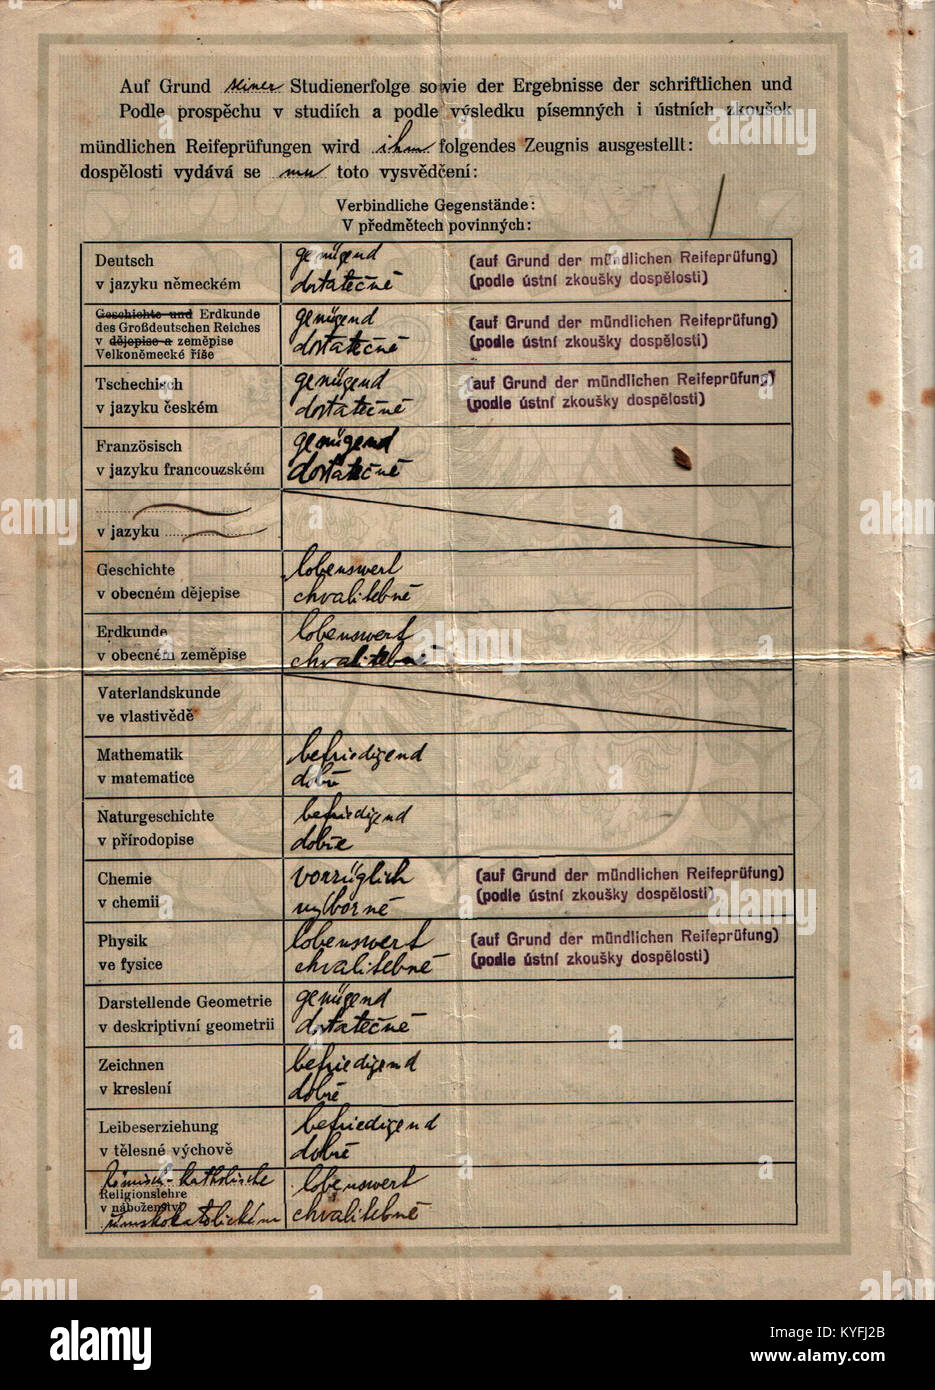 Auf Grund seiner Studienerfolge sowie der Ergebnisse der schriftlichen und
Podle prospěchu v studiích a podle výsledku písemných i ústních zkoušek
mündlichen Reifeprüfungen wird ihm folgendes Zeugnis ausgestellt:
dospělosti vydává se mu toto vysvědčení:
Verbindliche Gegenstände:
V předmětech povinných:
Deutsch genügend (auf Grund der mündlichen Reifeprüfung)
v jazyku německém dostatečně (podle ústní zkoušky dospělosti)
Geschichte und Erdkunde genügend (auf Grund der mündlichen Reifeprüfung)
des Großdeutschen Reiches
v dějepise a zeměpise dostatečně (podle ústní zkoušky dospělosti)
Velkoněmecké říše
Tschechisch genügend (auf Grund der mündlichen Reifeprüfung)
v jazyku českém dostatečně (podle ústní zkoušky dospělosti)
Französisch genügend
v jazyku francouzském dostatečně
v jazyku
Geschichte lobenswert
v obecném dějepise chvalitebně
Erdkunde lobenswert
v obecném zeměpise chvalitebně
Vaterlandskunde
ve vlastivědě
Mathematik befriedigend
v matematice dobře
Naturgeschichte befriedigend
v přírodopise dobře
Chemie vorzüglich (auf Grund der mündlichen Reifeprüfung)
v chemii výborně (podle ústní zkoušky dospělosti)
Physik lobenswert (auf Grund der mündlichen Reifeprüfung)
ve fysice chvalitebně (podle ústní zkoušky dospělosti)
Darstellende Geometrie genügend
v deskriptivní geometrii dostatečně
Zeichnen befriedigend
v kreslení dobře
Leibeserziehung befriedigend
v tělesné výchově dobře
Römisch-katholische lobenswert
Religionslehre
v náboženství
římskokatolickém chvalitebně
alamy
Image ID: KYFJ2B
www.alamy.com